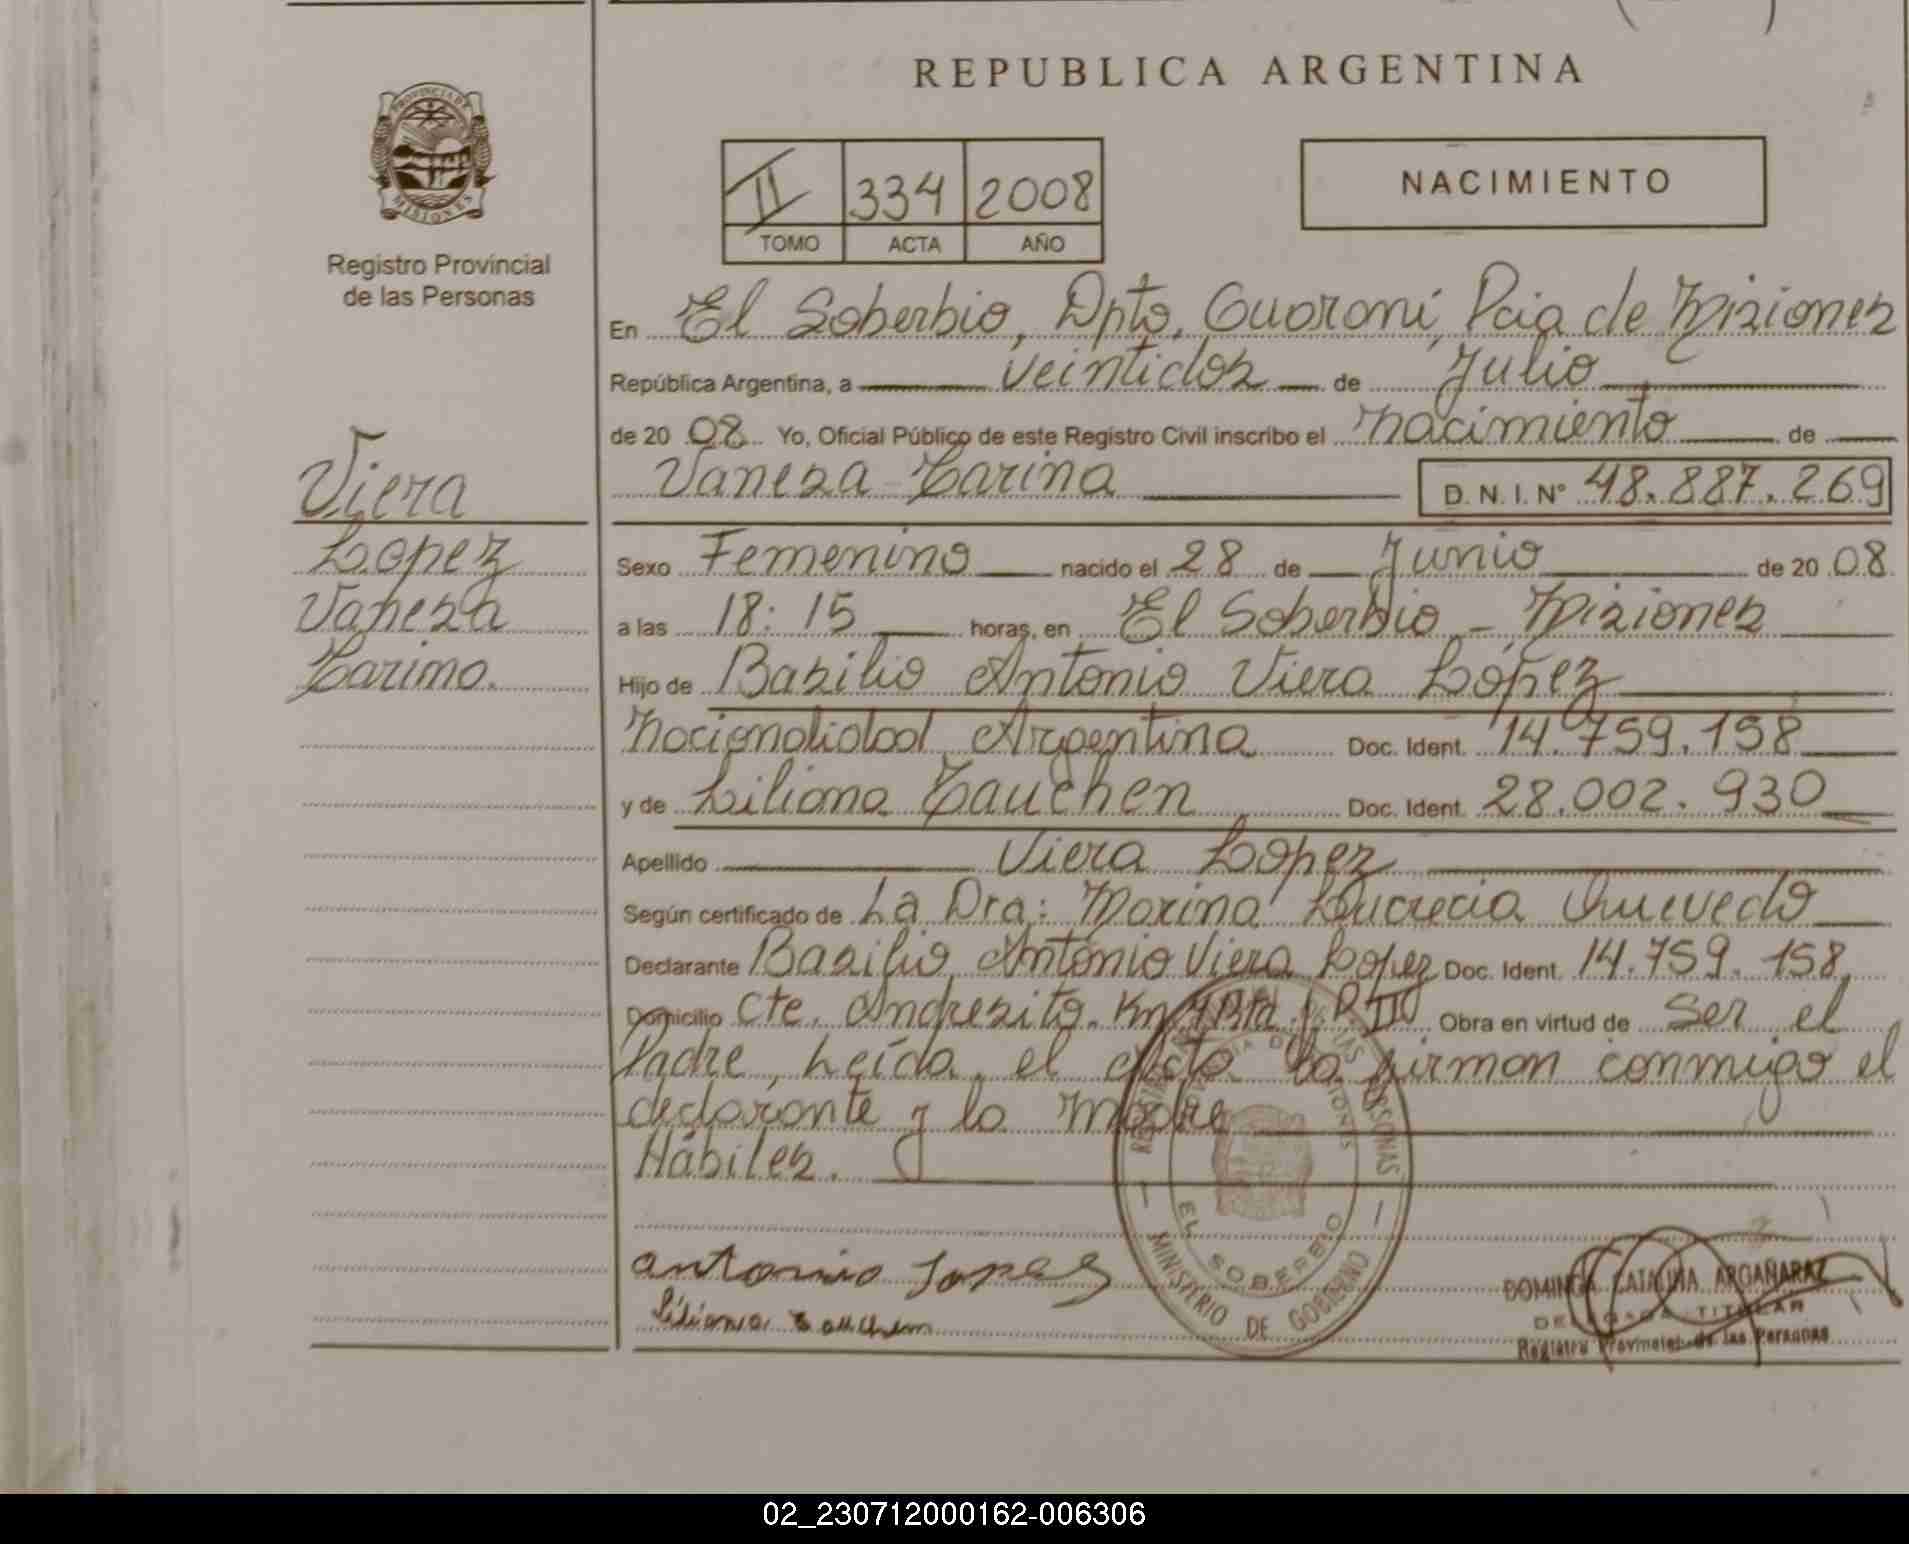 REPUBLICA ARGENTINA
PROVINCIA DE
MISIONES
Registro Provincial
de las Personas
II 334 2008
TOMO ACTA AÑO
NACIMIENTO
En El Soberbio, Dpto. Guaraní, Pcia de Misiones
República Argentina, a veintidos de Julio
de 20 08 Yo, Oficial Público de este Registro Civil inscribo el nacimiento de
Vanesa Karina D. N. I. Nº 48.887.269
Viera
Lopez
Vanesa
Karina.
Sexo Femenino nacido el 28 de Junio de 20 08
a las 18:15 horas, en El Soberbio - Misiones
Hijo de Basilio Antonio Viera López
Nacionalidad Argentina Doc. Ident. 14.759.158
y de Liliana Tauchen Doc. Ident. 28.002.930
Apellido Viera Lopez
Según certificado de La Dra: Marina Lucrecia Quevedo
Declarante Basilio Antonio Viera Lopez Doc. Ident. 14.759.158
Domicilio Cte. Andresito. Obra en virtud de ser el
Padre, Leída el acta la firman conmigo el
declarante y la madre
Hábiles.
antonio Lopes
Liliana Tauchen
EL SOBERBIO
MINISTERIO DE GOBIERNO
DOMINGA CATALINA ARGAÑARAZ
DELEGADA TITULAR
Registro Provincial de las Personas
02_230712000162-006306